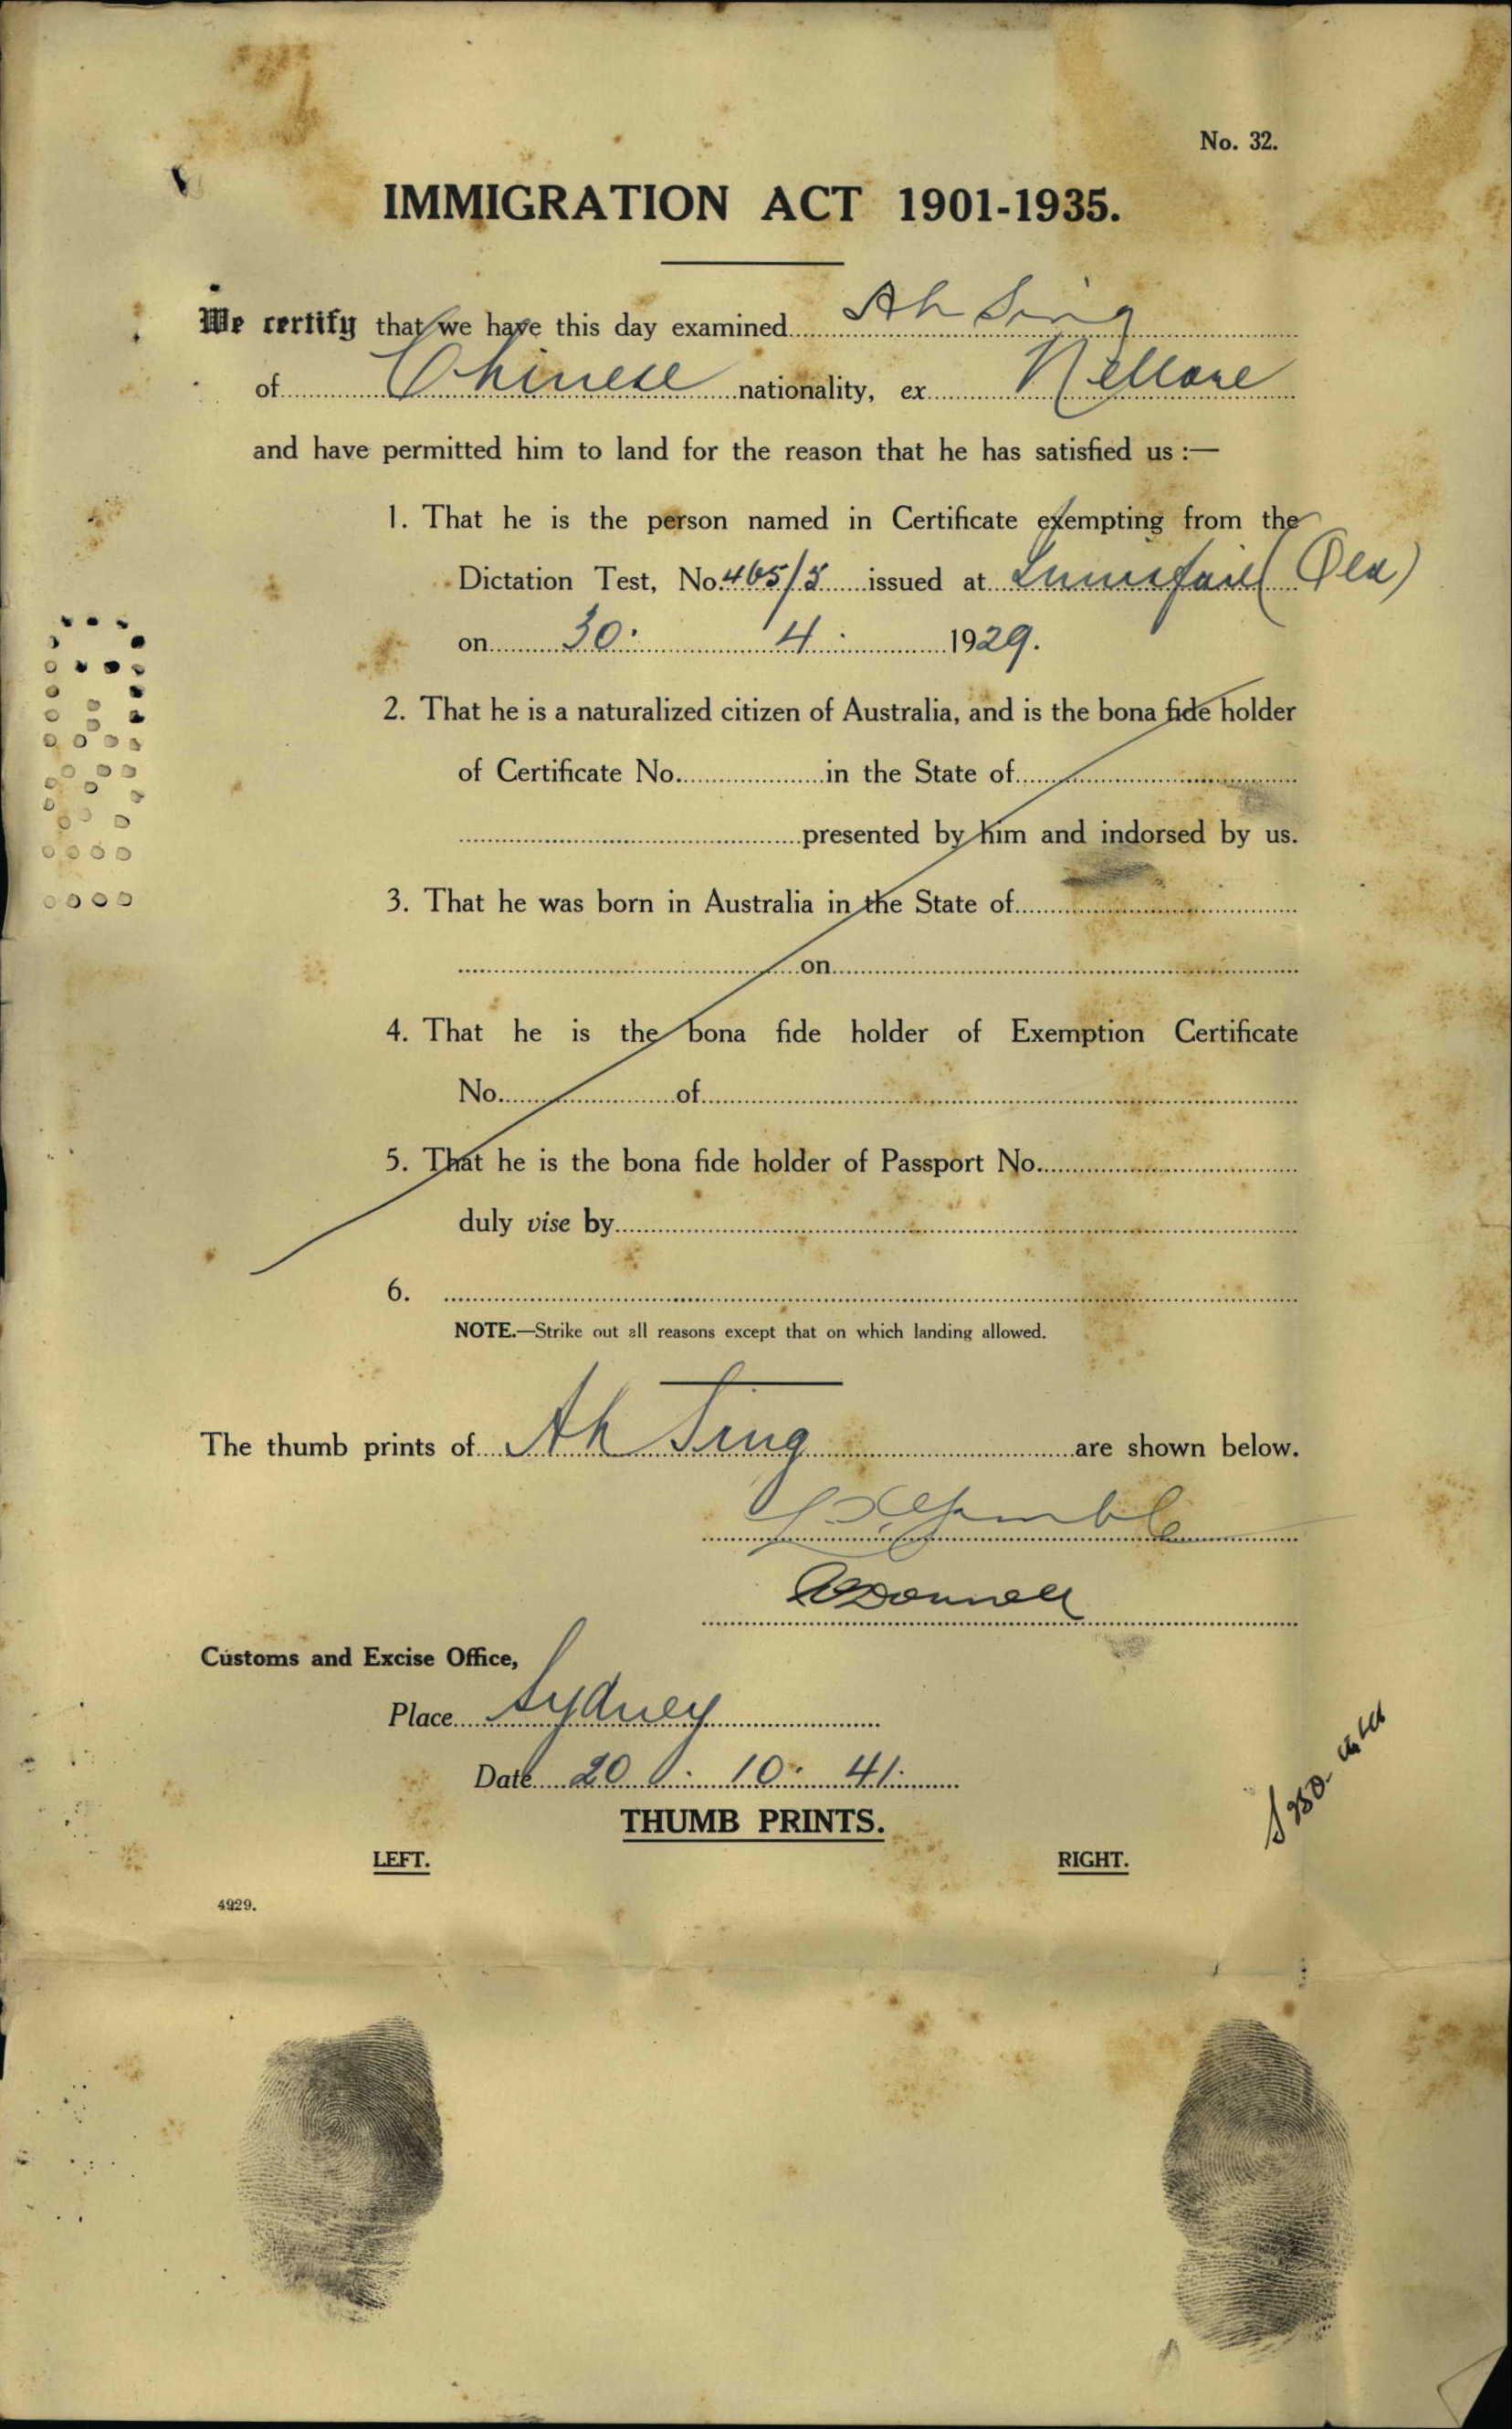 No. 32.
IMMIGRATION ACT 1901-1935.
We certify that we have this day examined Ah Sing
of Chinese nationality, ex Nellore
and have permitted him to land for the reason that he has satisfied us :—
1. That he is the person named in Certificate exempting from the
Dictation Test, No. 465/3 issued at Innisfail (Qld)
on 30. 4. 1929.
2. That he is a naturalized citizen of Australia, and is the bona fide holder
of Certificate No. in the State of
presented by him and indorsed by us.
3. That he was born in Australia in the State of
on
4. That he is the bona fide holder of Exemption Certificate
No. of
5. That he is the bona fide holder of Passport No.
duly vise by
6.
NOTE.—Strike out all reasons except that on which landing allowed.
The thumb prints of Ah Sing are shown below.
O'Donnell
Customs and Excise Office,
Place Sydney
Date 20. 10. 41.
THUMB PRINTS.
LEFT. RIGHT.
4929.